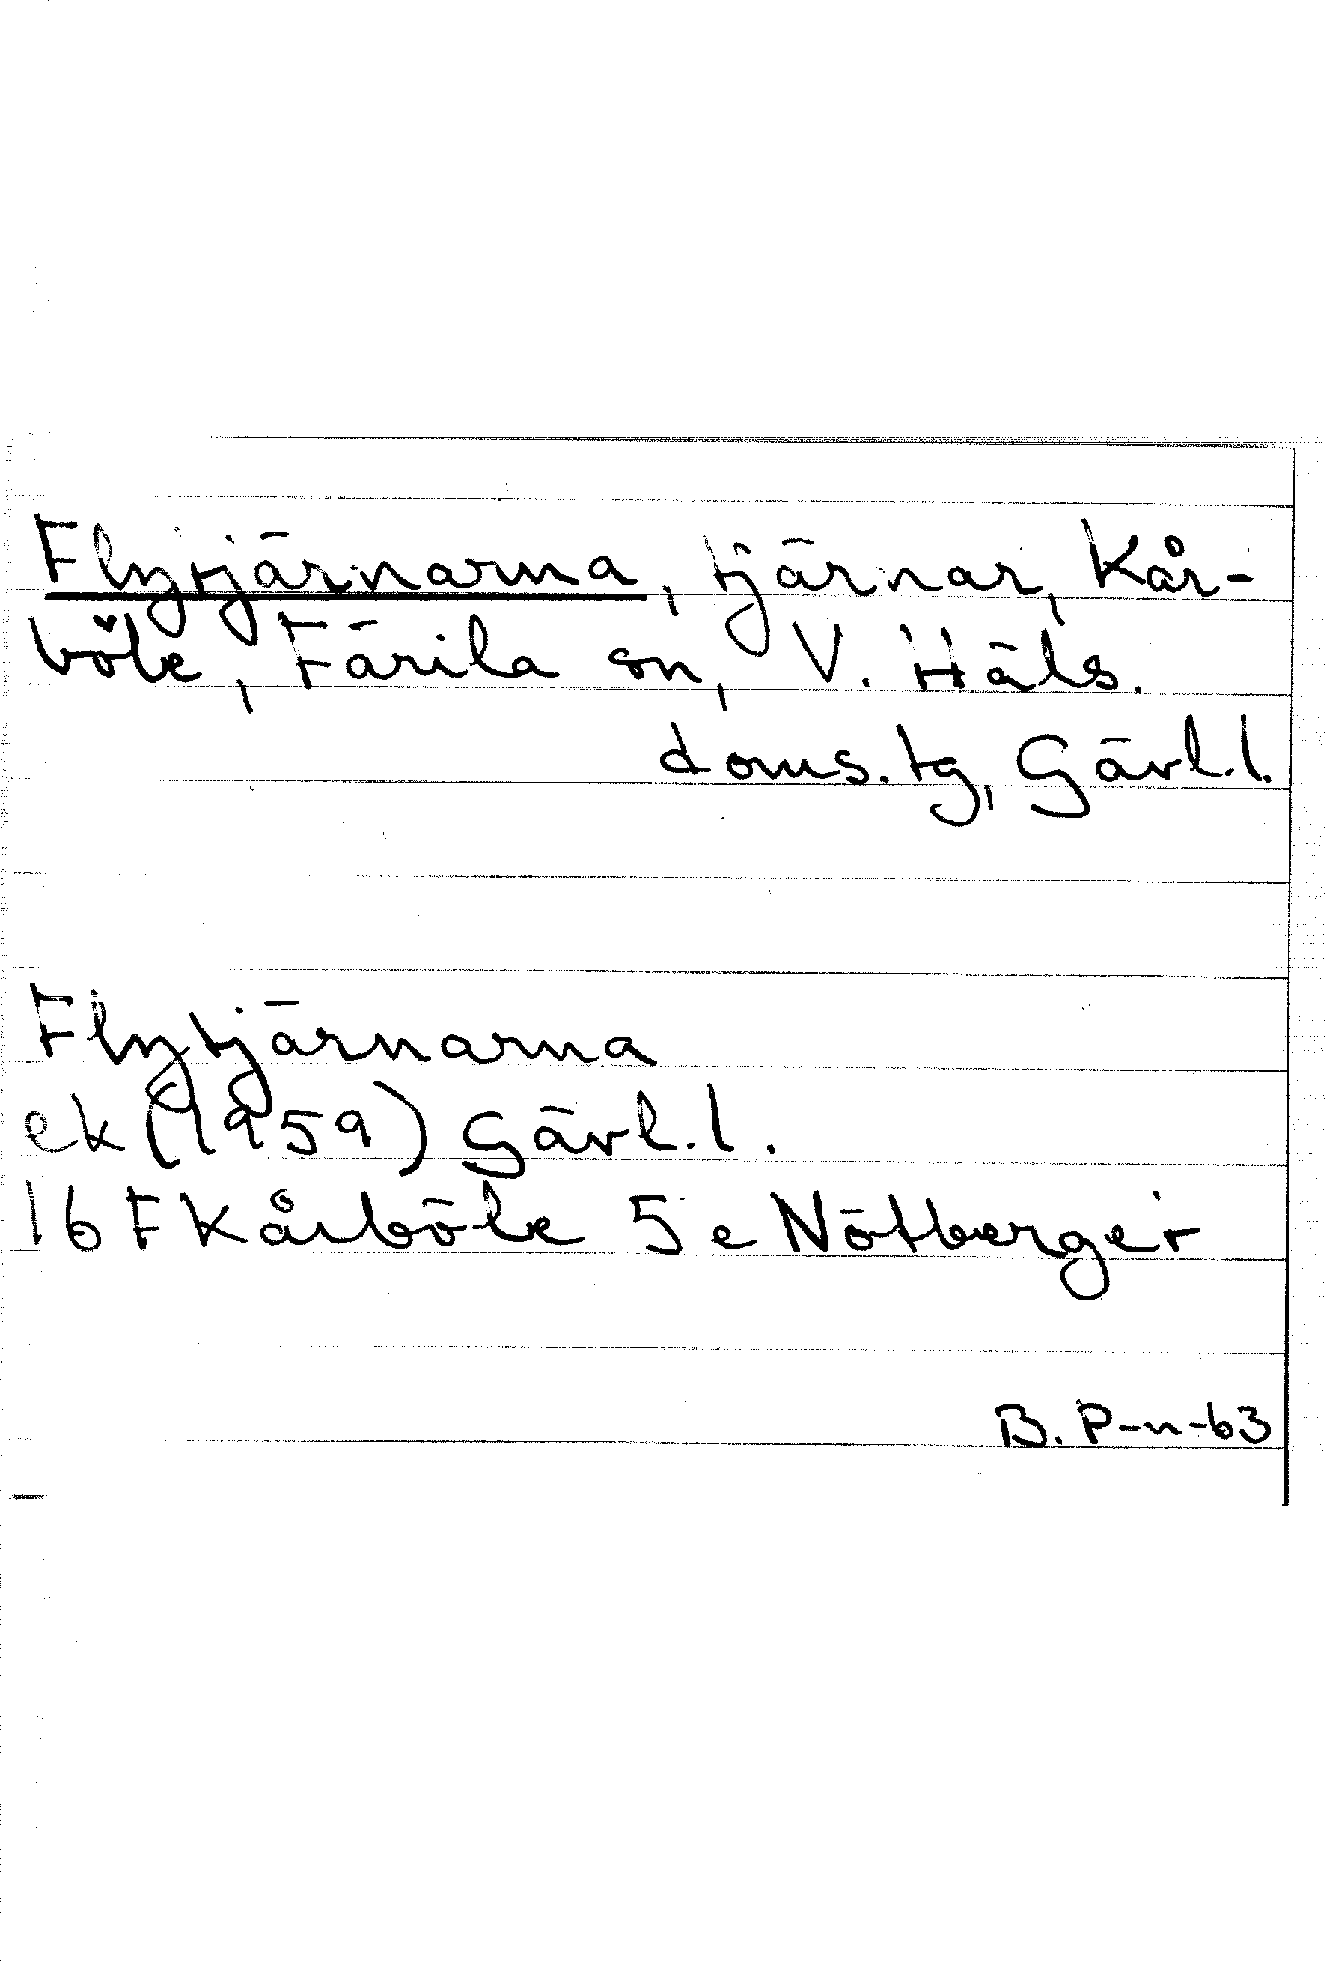 Flytjärnarna, tjärnar, Kår-
böle, Färila sn, V. Häls.
doms. tg, Gävl.l.
Flytjärnarna
ek (1959) Gävl.l.
16 F Kårböle 5 e Nötberget
B. P-n-63